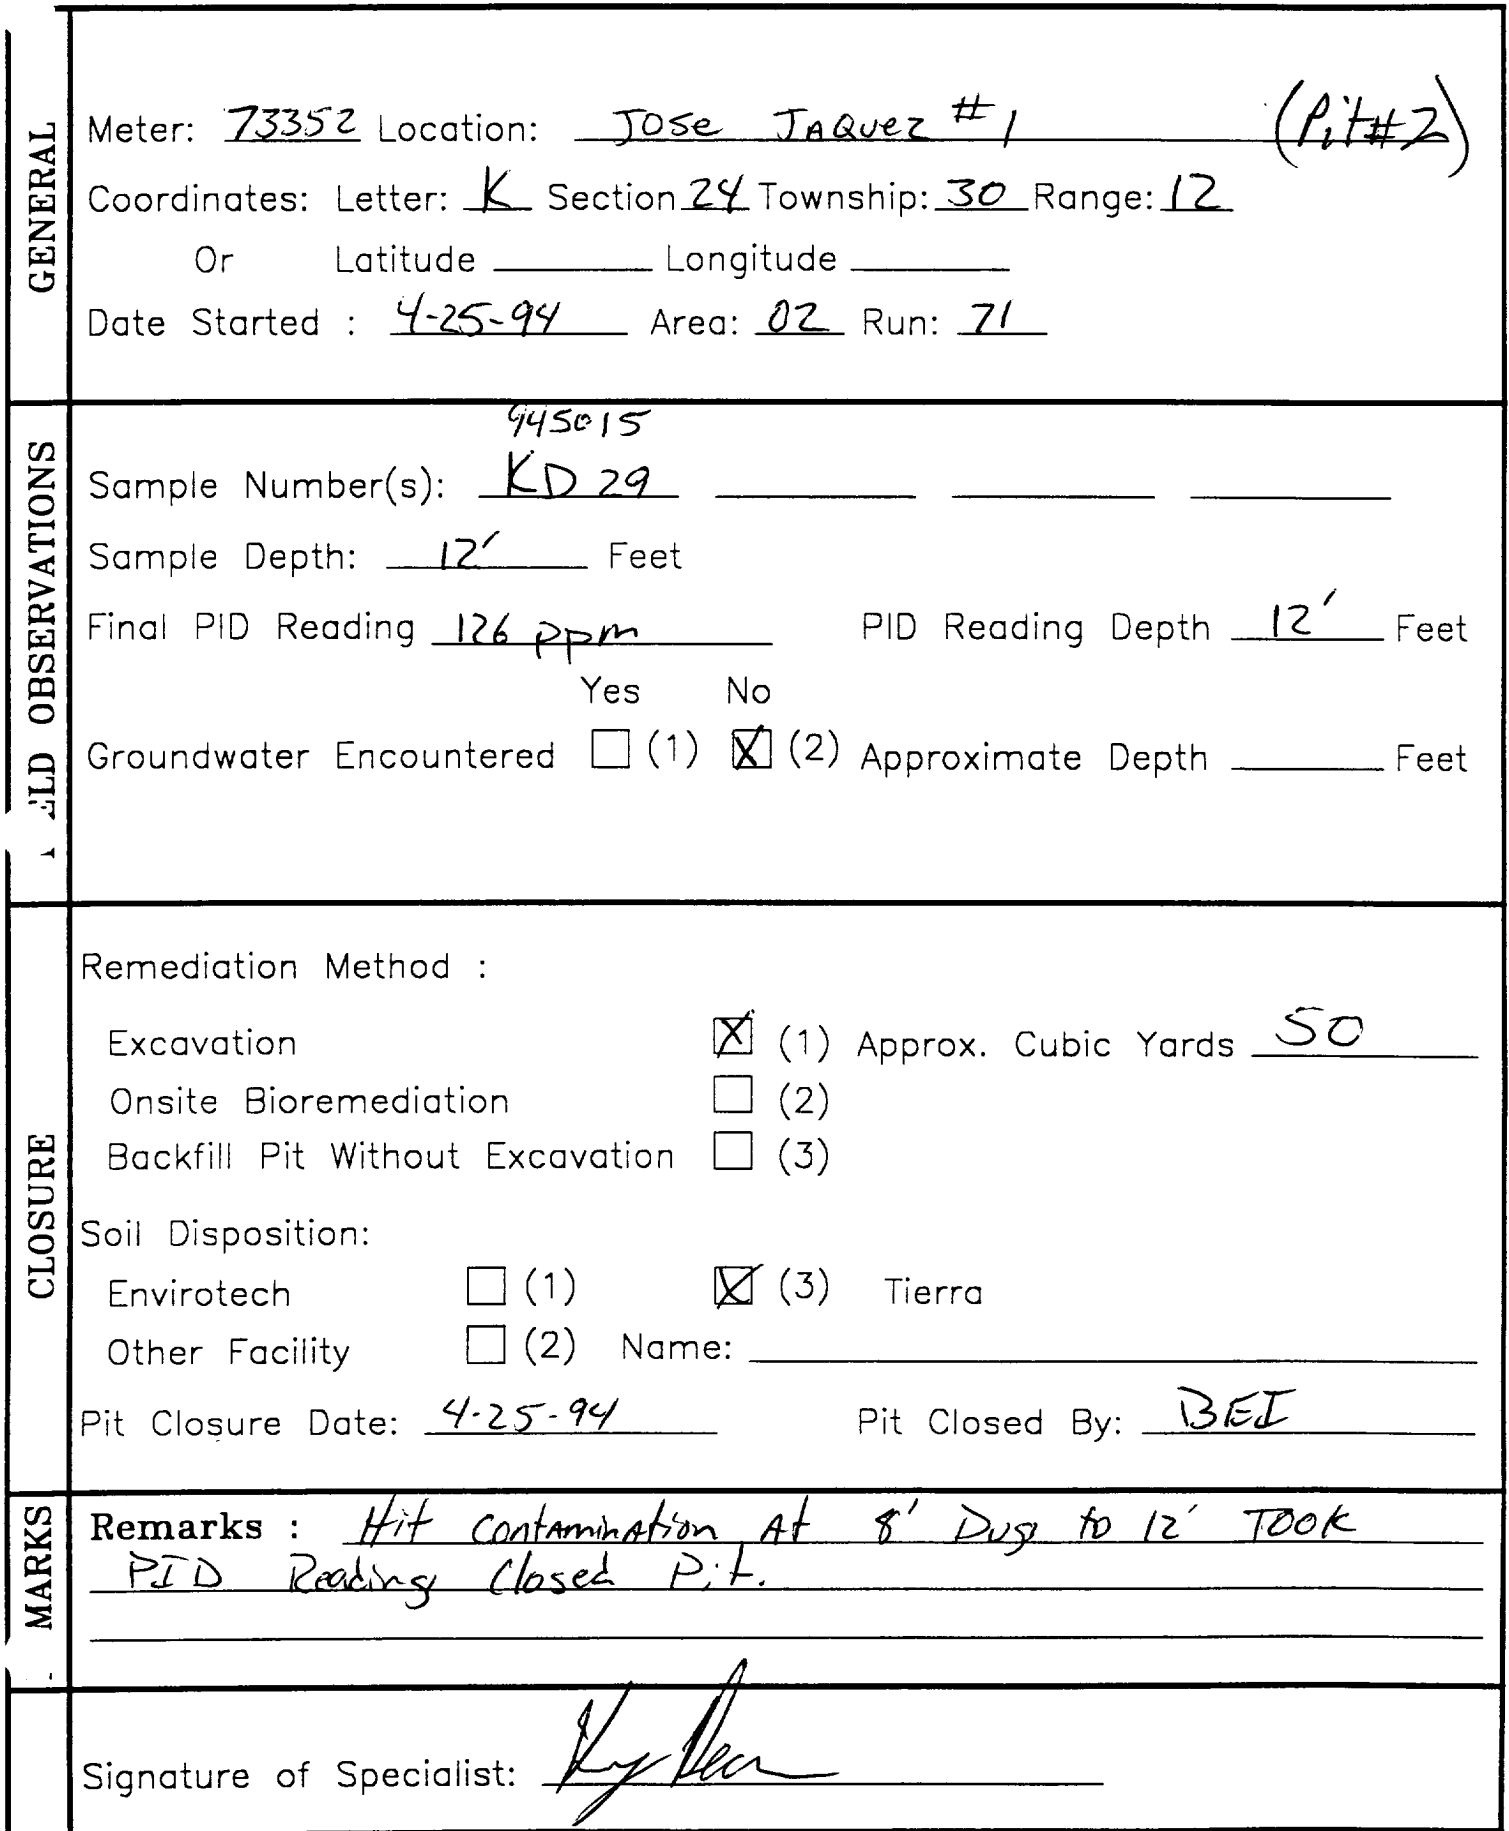 GENERAL
Meter: 73352 Location: Jose Jaquez #1 (Pit#2)
Coordinates: Letter: K Section 24 Township: 30 Range: 12
Or Latitude Longitude
Date Started : 4-25-94 Area: 02 Run: 71
ELD OBSERVATIONS
945015
Sample Number(s): KD 29
Sample Depth: 12' Feet
Final PID Reading 126 ppm PID Reading Depth 12' Feet
Yes No
Groundwater Encountered (1) X (2) Approximate Depth Feet
CLOSURE
Remediation Method :
Excavation X (1) Approx. Cubic Yards 50
Onsite Bioremediation (2)
Backfill Pit Without Excavation (3)
Soil Disposition:
Envirotech (1) X (3) Tierra
Other Facility (2) Name:
Pit Closure Date: 4-25-94 Pit Closed By: BEI
MARKS
Remarks : Hit contamination At 8' Dug to 12' TOOK
PID Reading Closed Pit.
Signature of Specialist: